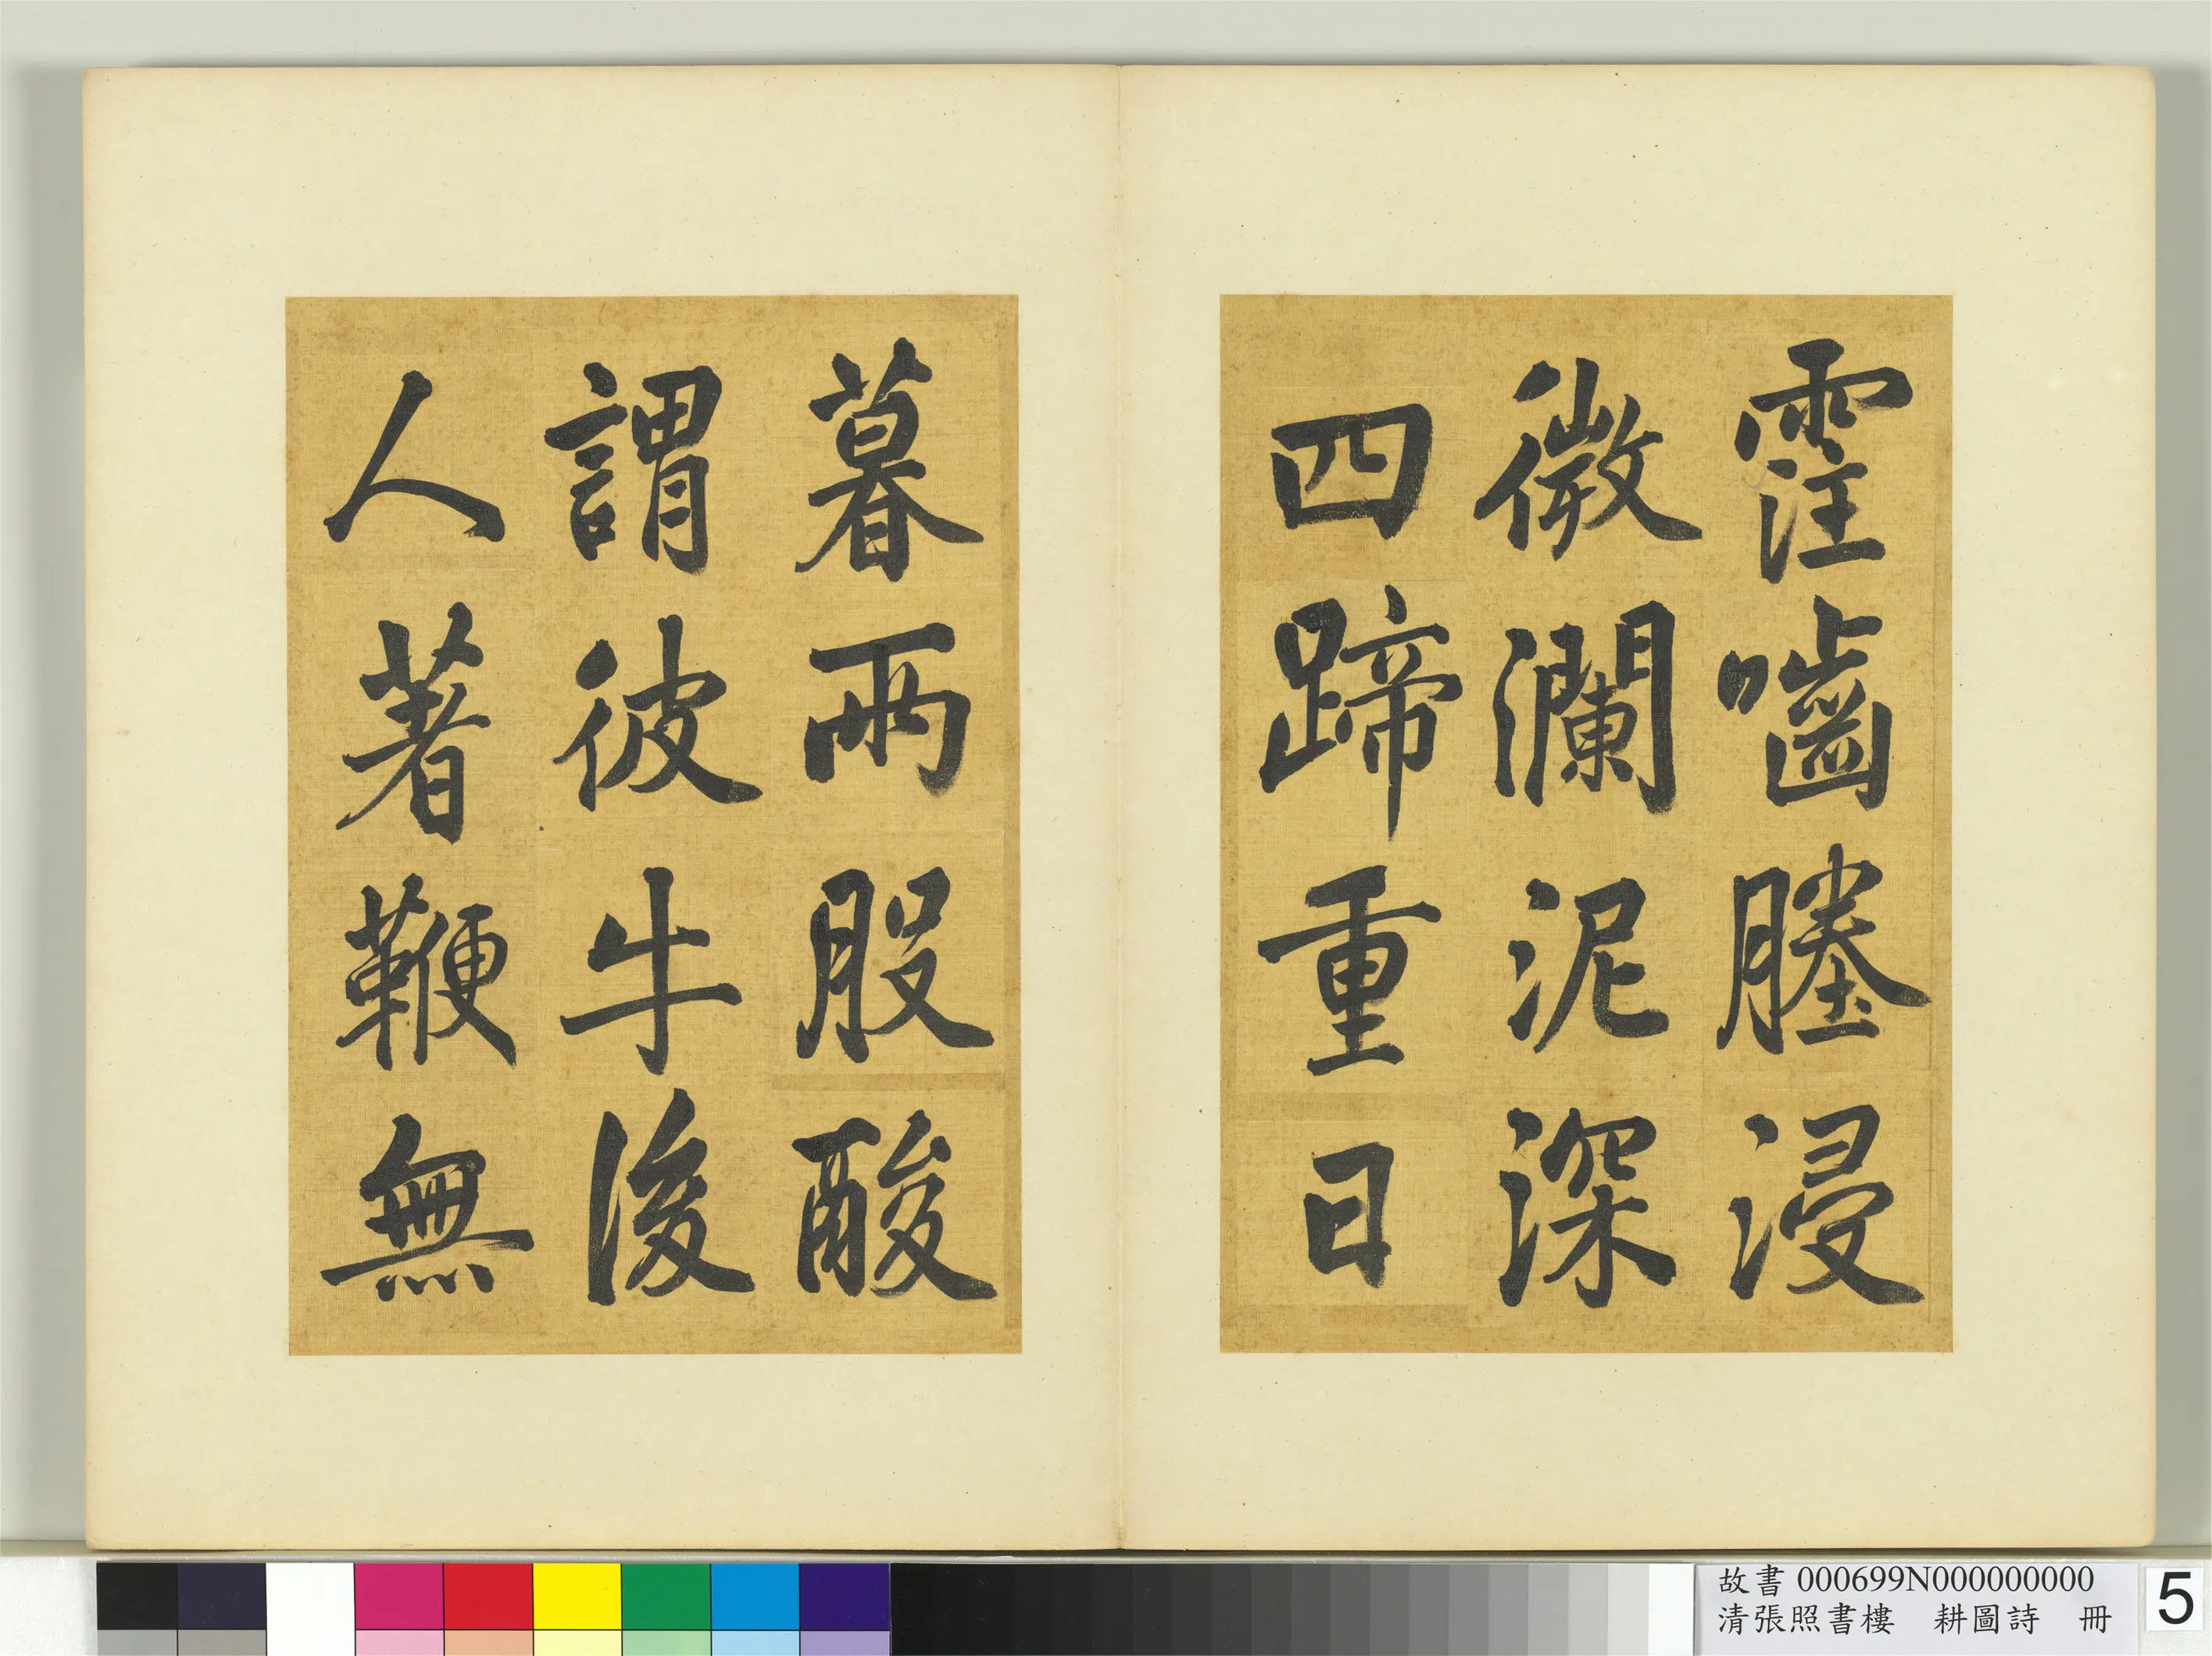 霔嚙塍浸
微瀾泥深
四蹄重日
暮兩股酸
謂彼牛後
人著鞭無
故書 000699N000000000
清張照書樓　耕圖詩　冊
5